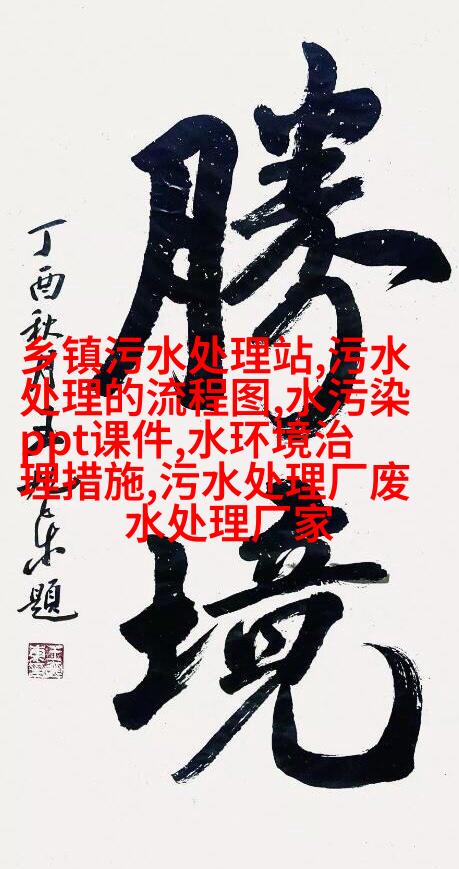 勝境
丁酉秋月 題
乡镇污水处理站,污水
处理的流程图,水污染
ppt课件,水环境治
理措施,污水处理厂废
水处理厂家